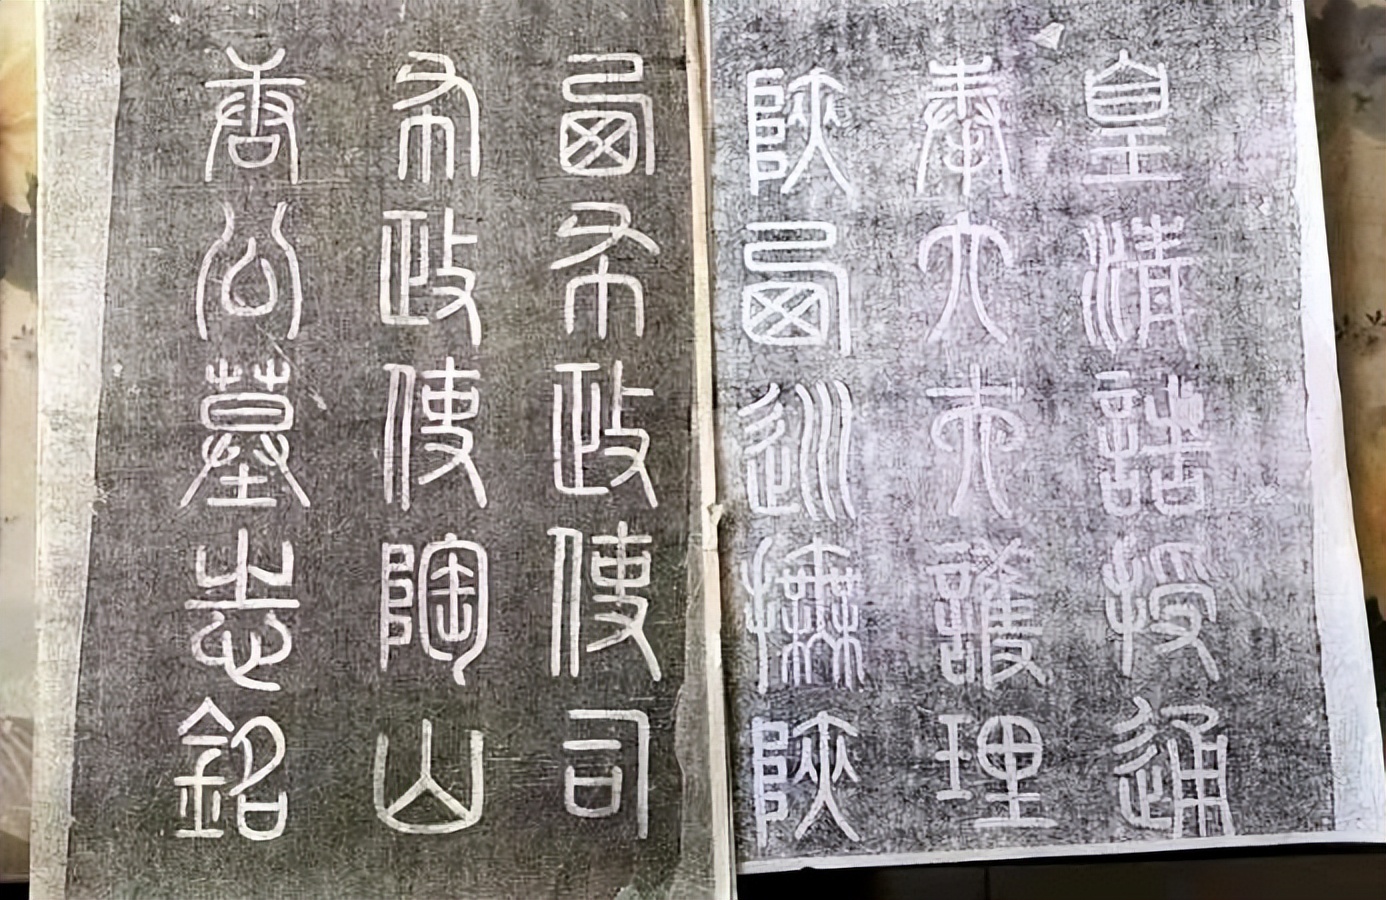 皇清誥授通
奉大夫護理
陝西巡撫陝
西布政使司
布政使陶山
唐公墓志銘